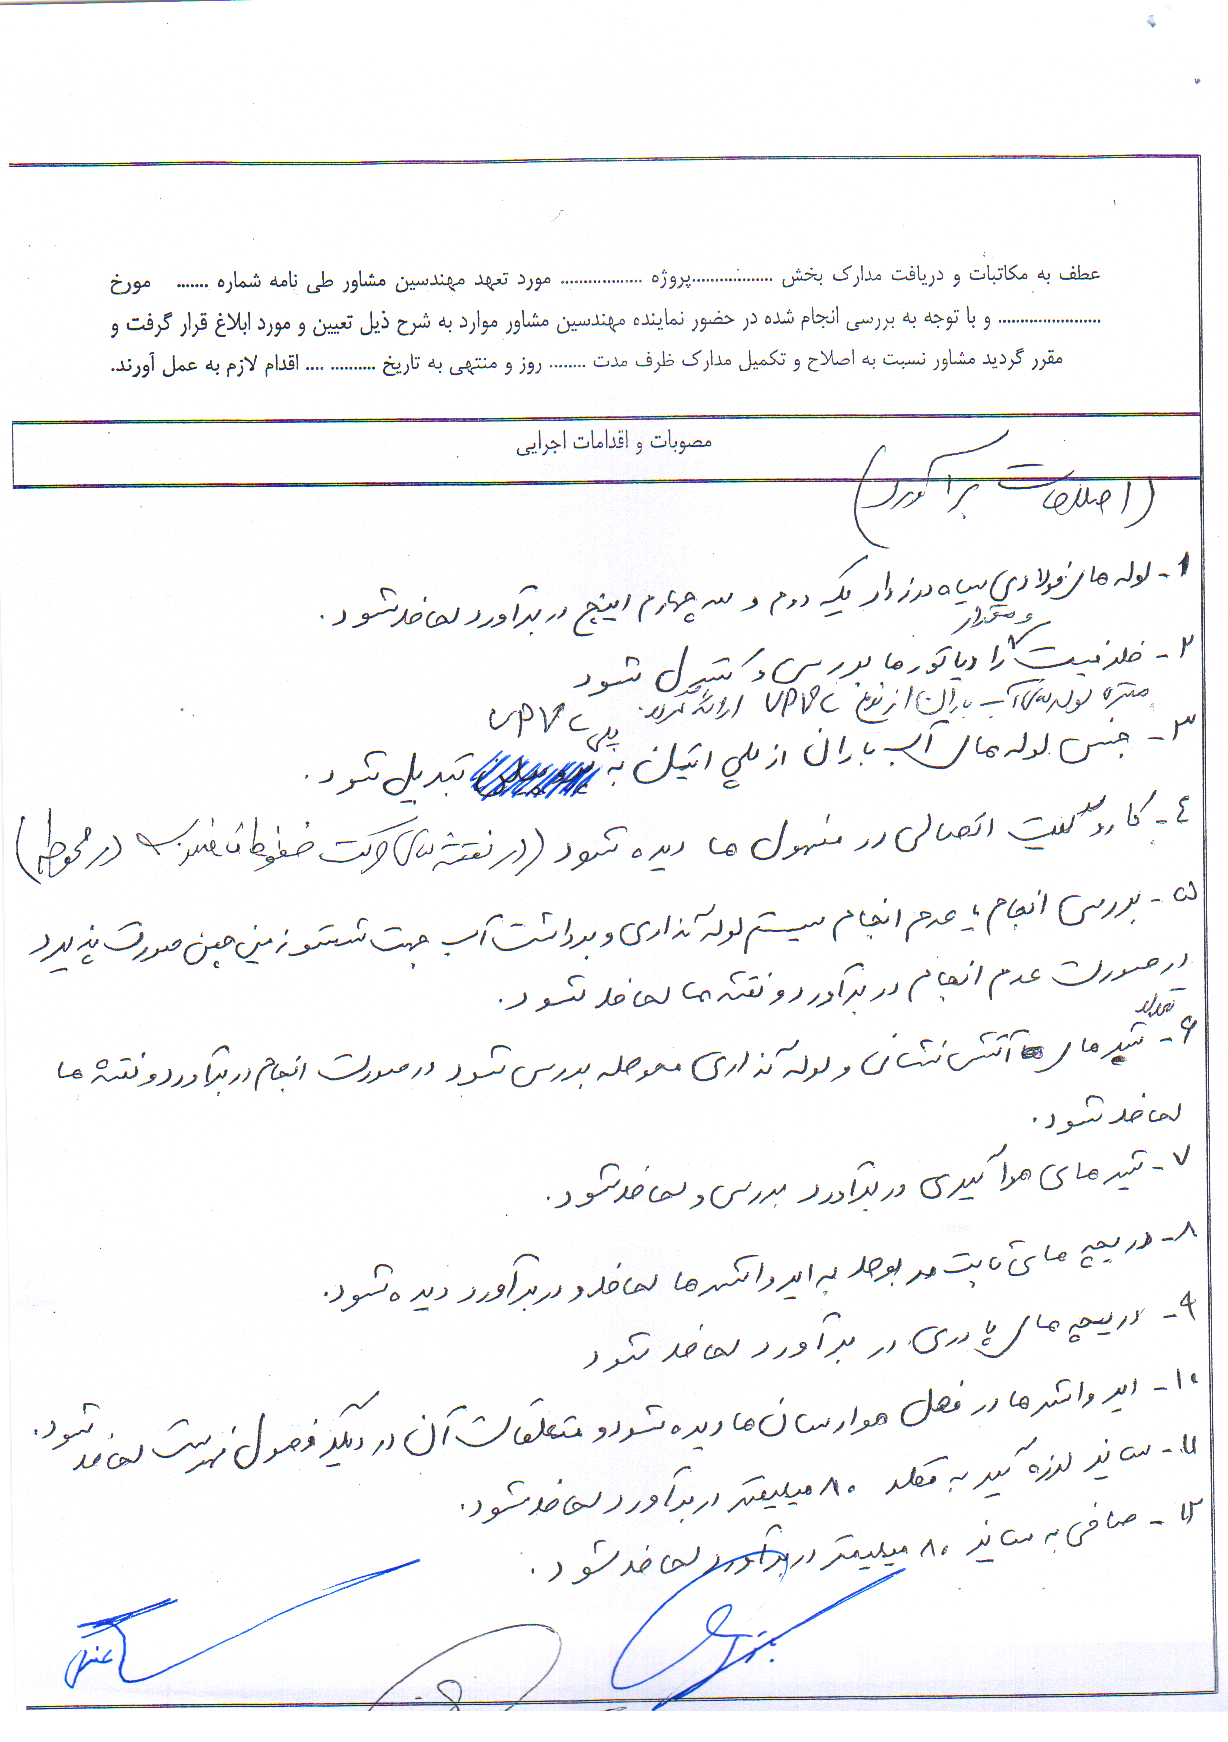 عطف به مکاتبات و دریافت مدارک بخش ..................پروژه .................. مورد تعهد مهندسین مشاور طی نامه شماره ....... مورخ
....................... و با توجه به بررسی انجام شده در حضور نماینده مهندسین مشاور موارد به شرح ذیل تعیین و مورد ابلاغ قرار گرفت و
مقرر گردید مشاور نسبت به اصلاح و تکمیل مدارک ظرف مدت ........ روز و منتهی به تاریخ ........... .... اقدام لازم به عمل آورند.
مصوبات و اقدامات اجرایی
(اصلاحات برآورد)
۱- لوله های فولادی سیاه درزدار یک دوم و سه چهارم اینچ در برآورد لحاظ شود.
و مقدار
۲- ظرفیت رادیاتورها بررسی و کنترل شود
متره لوله های آب باران از نوع UPVC ارائه گردد.
UPVC
۳- جنس لوله های آب باران از پلی اتیلن به پلی تبدیل شود.
۴- کار دستیت اتصالی در منهول ها دیده شود (در نقشه های شرکت خطوط فاضلاب در محوطه)
۵- بررسی انجام یا عدم انجام سیستم لوله گذاری و برداشت آب جهت شستشو زمین چمن صورت پذیرد
در صورت عدم انجام در برآورد و نقشه ها لحاظ شود.
تعداد
۶- شیرهای آتش نشانی و لوله گذاری محوطه بررسی شود در صورت انجام در برآورد و نقشه ها
لحاظ شود.
۷- شیرهای هواگیری در برآورد بررسی و لحاظ شود.
۸- دریچه های ثابت مربوط به ایرواشرها لحاظ و در برآورد دیده شود.
۹- دریچه های پادری در برآورد لحاظ شود
۱۰- ایرواشرها در فصل هوارسان ها دیده شود و متعلقات آن در دیگر فصول فهرست لحاظ شود.
۱۱- سایز لرزه گیر به قطر ۸۰ میلیمتر در برآورد لحاظ شود.
۱۲- صافی به سایز ۸۰ میلیمتر در برآورد لحاظ شود.